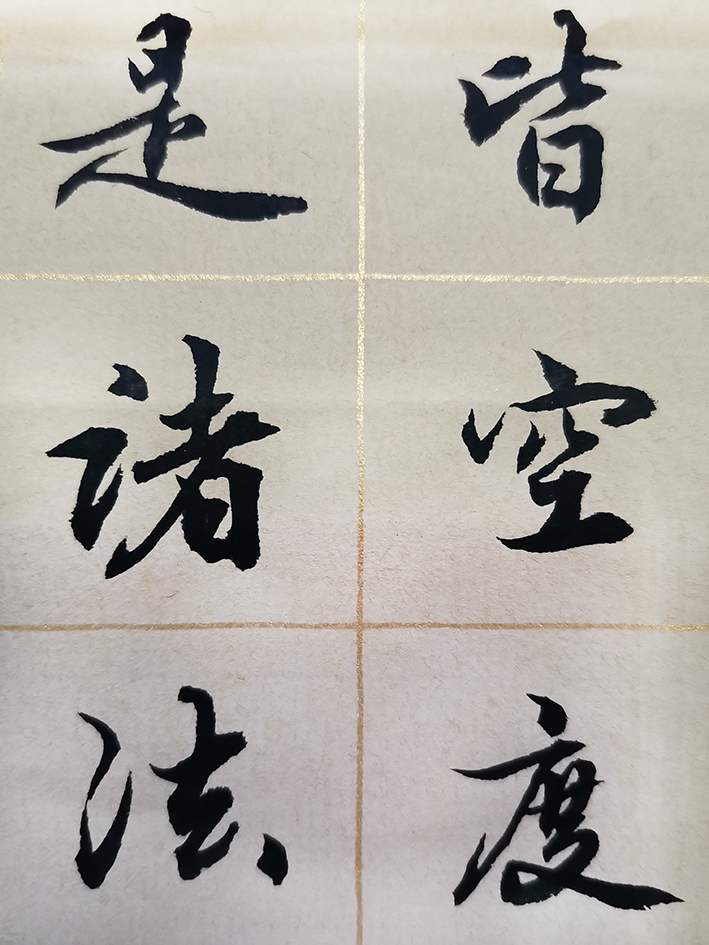 皆空度
是諸法